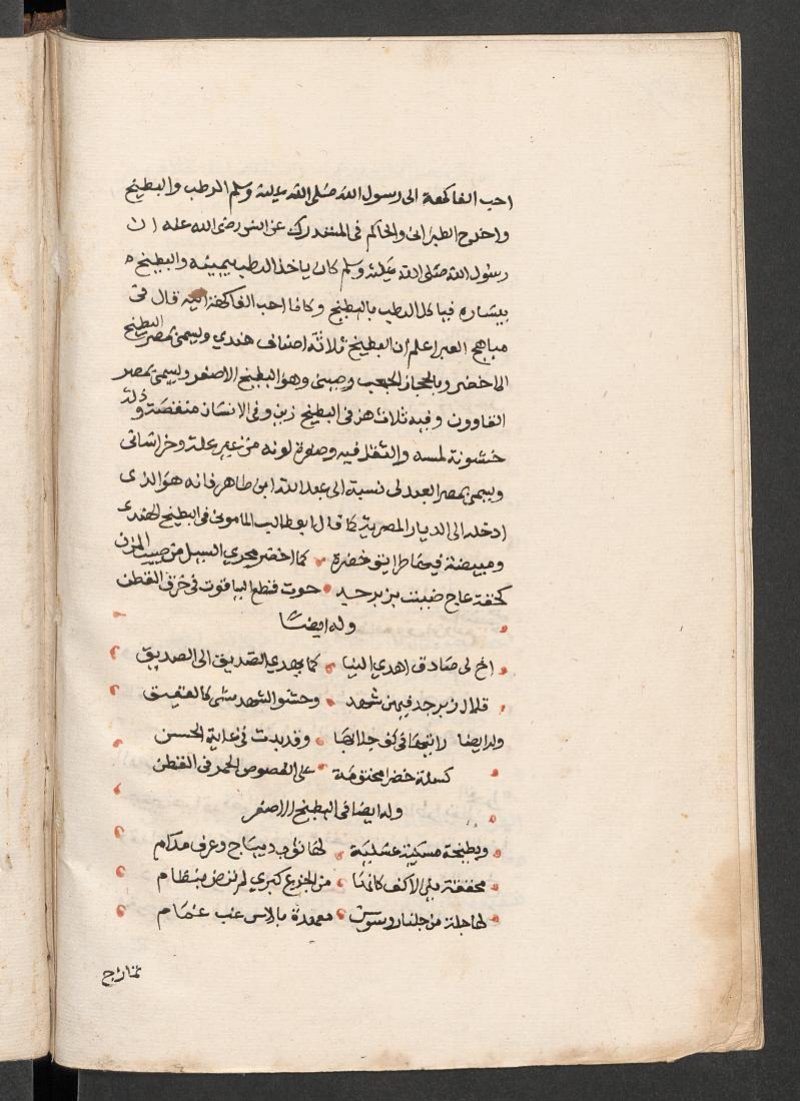 احب الفاكهة الى رسول الله صلى الله عليه وسلم الرطب والبطيخ
واخرج الطبرانى والحاكم فى المستدرك عن انس رضى الله عنه ان
رسول الله صلى الله عليه وسلم كان ياخذ الرطب بيمينه والبطيخ
بيساره فياكل الرطب بالبطيخ وكانا احب الفاكهة اليه قال فى
مباهج العبر اعلم ان البطيخ ثلاثة اصناف هندي ويسمى بمصر البطيخ
الاخضر وبالحجاز الحبحب وصينى وهو البطيخ الاصفر ويسمى بمصر
القاوون وفيه ثلاث هن فى البطيخ زين وفى الانسان منقصة وذلة
خشونة لمسه والثقل فيه وصفرة لونه من غير علة وخراسانى
ويسمى بمصر العبدلى نسبة الى عبد الله ابن طاهر فانه هو الذى
ادخله الى الديار المصرية كما قال ابو طالب المامونى فى البطيخ الهندى
ومبيضة فيها طرايق خضرة كما اخضر مجرى السيل من صيب المزن
كحقة عاج ضببت بزبرجد حوت قطع الياقوت فى خرق القطن
وله ايضا
اخ لى صادق اهدى الينا كما يهدى الصديق الى الصديق
قلال زبرجد فيهن شهد وحشو الشهد شى كالعقيق
وله ايضا رايتها فى كف جلابها وقد بدت فى غاية الحسن
كسلة خضرا مختومة على الفصوص الحمر فى القطن
وله ايضا فى البطيخ الاصفر
وبطيخة مسكية عسلية لها ثوب ديباج وعرف مدام
محققة ملى الاكف كانها من الجزع كبرى لم ترض بنظام
لها حلة من جلنار وسوسن معمودة بالاس غب غمام
تمازج